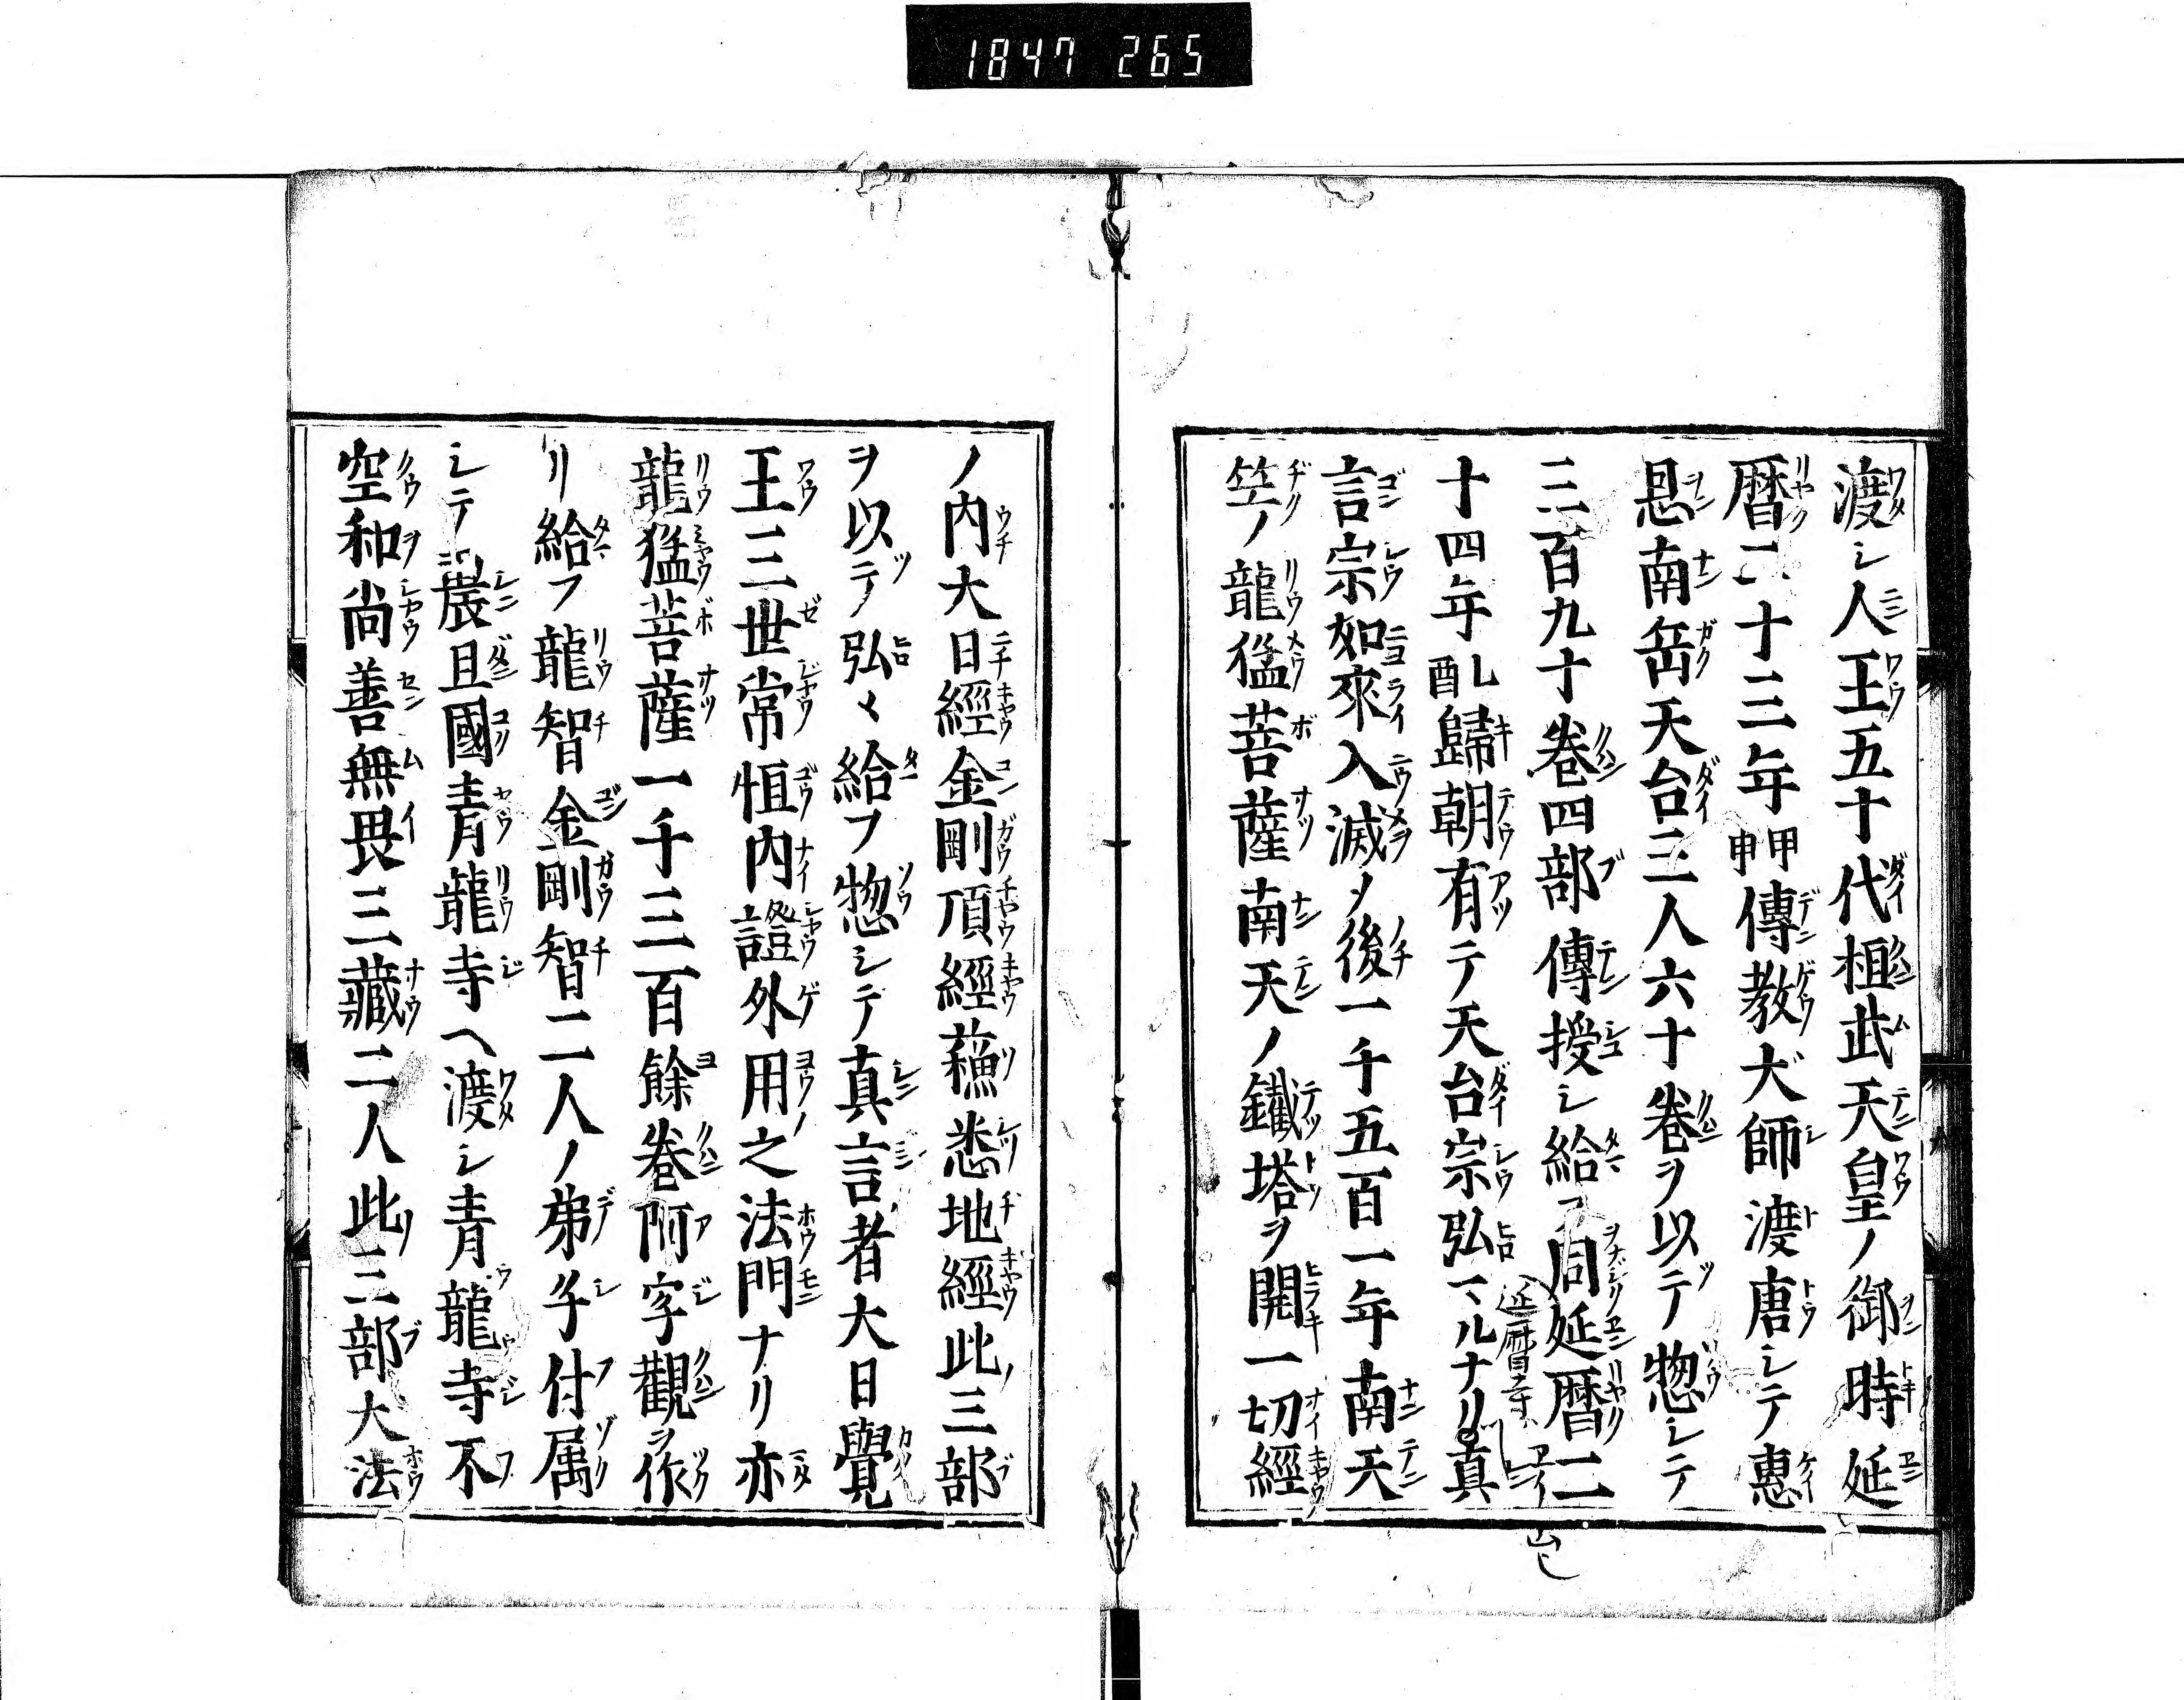 1847 265
渡シ人王五十代桓武天皇ノ御時延
暦二十三年甲申傳教大師渡唐シテ惠
思南岳天台三人六十卷ヲ以テ惣シテ
三百九十卷四部傳授シ給フ同延暦二
十四年乙酉歸朝有テ天台宗弘マルナリ真
延暦寺
言宗如來入滅ノ後一千五百一年南天
竺ノ龍猛菩薩南天ノ鐵塔ヲ開一切經
ノ内大日經金剛頂經蘓悉地經此三部
ヲ以テ弘メ給フ惣シテ真言者大日覺
王三世常恒内證外用之法門ナリ亦
龍猛菩薩一千三百餘卷阿字觀ヲ作
リ給フ龍智金剛智二人ノ弟子付属
シテ震旦國青龍寺ヘ渡シ青龍寺不
空和尚善無畏三藏二人此三部大法